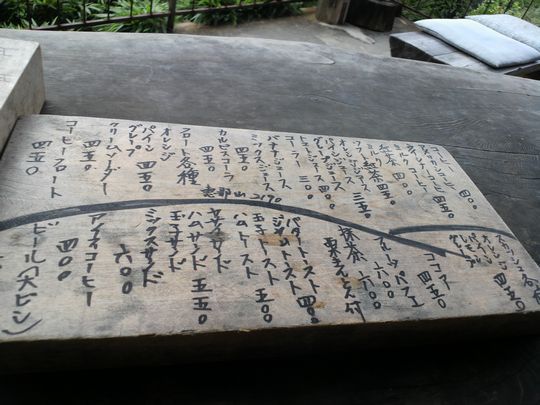 ミルク 四〇〇
紅茶 四〇〇
ソフト紅茶 四五〇
オレンジジュース
パインジュース
グレープジュース
トマトジュース 三五〇
コーラ 三五〇
バナナジュース
ミックスジュース 四五〇
カルピスコーラ 四五〇
フロート各種
オレンジ
パイン 四五〇
グレープ
クリームソーダー 四五〇
コーヒーフロート 四五〇
恵那山 2190
ココア 四五〇
フルーツパフェ 六〇〇
抹茶 六〇〇
栗きんとん付
バタートスト 四〇〇
ジャムトスト
玉子トースト 五五〇
ハムトスト
ヤサイサンド
ハムサンド 五五〇
玉子サンド
ミックスサンド 六〇〇
アイスコーヒー 四〇〇
ビール(大ビン)